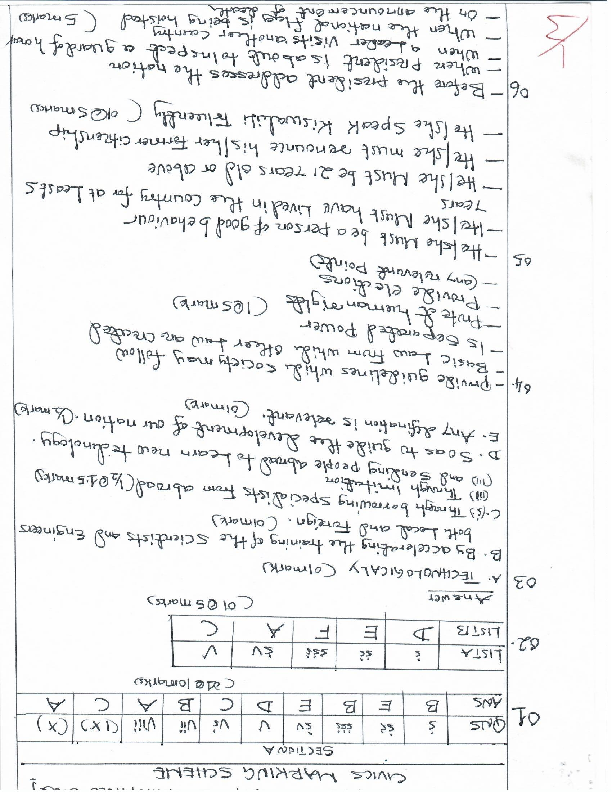 CIVICS MARKING SCHEME
SECTION A
01
QNS i ii iii iv v vi vii viii (IX) (X)
ANS B E B E D C B A C A
(@10marks)
02.
LISTA i ii iii iv v
LISTB D E F A C
(0105marks)
Answer
03 A. TECHNOLOGICALY (01mark)
B. By accelerating the training of the Scientists and Engineers
both Local and Foreign. (01mark)
C(i) Through borrowing Specialists from abroad (½ 01.5marks)
(ii) Through imitation
(iii) and Sending people abroad to Learn new technology.
D. So as to guide the development of our nation. (½mark)
E. Any defination is relevant. (01mark)
04 - Provide guidelines which society may follow
- Basic Law from which other Law are created
- Is Separated Power
- Protect human rights (105mark)
- Provide elections
- (any relevant Points)
05
- He/she Must be a person of good behaviour
- He/she Must have Lived in the country for at Least 5
years
- He/she Must be 21 years old or above
- He/she must renounce his/her former citizenship
- He/she Speak Kiswahili Fluently (@05marks)
06 - Before the president addresses the nation
- When President is about to Inspect a guard of honour
- When a Leader Visits another country
- When the national flag is being hoisted
- On the announcement of death (5marks)
1/3